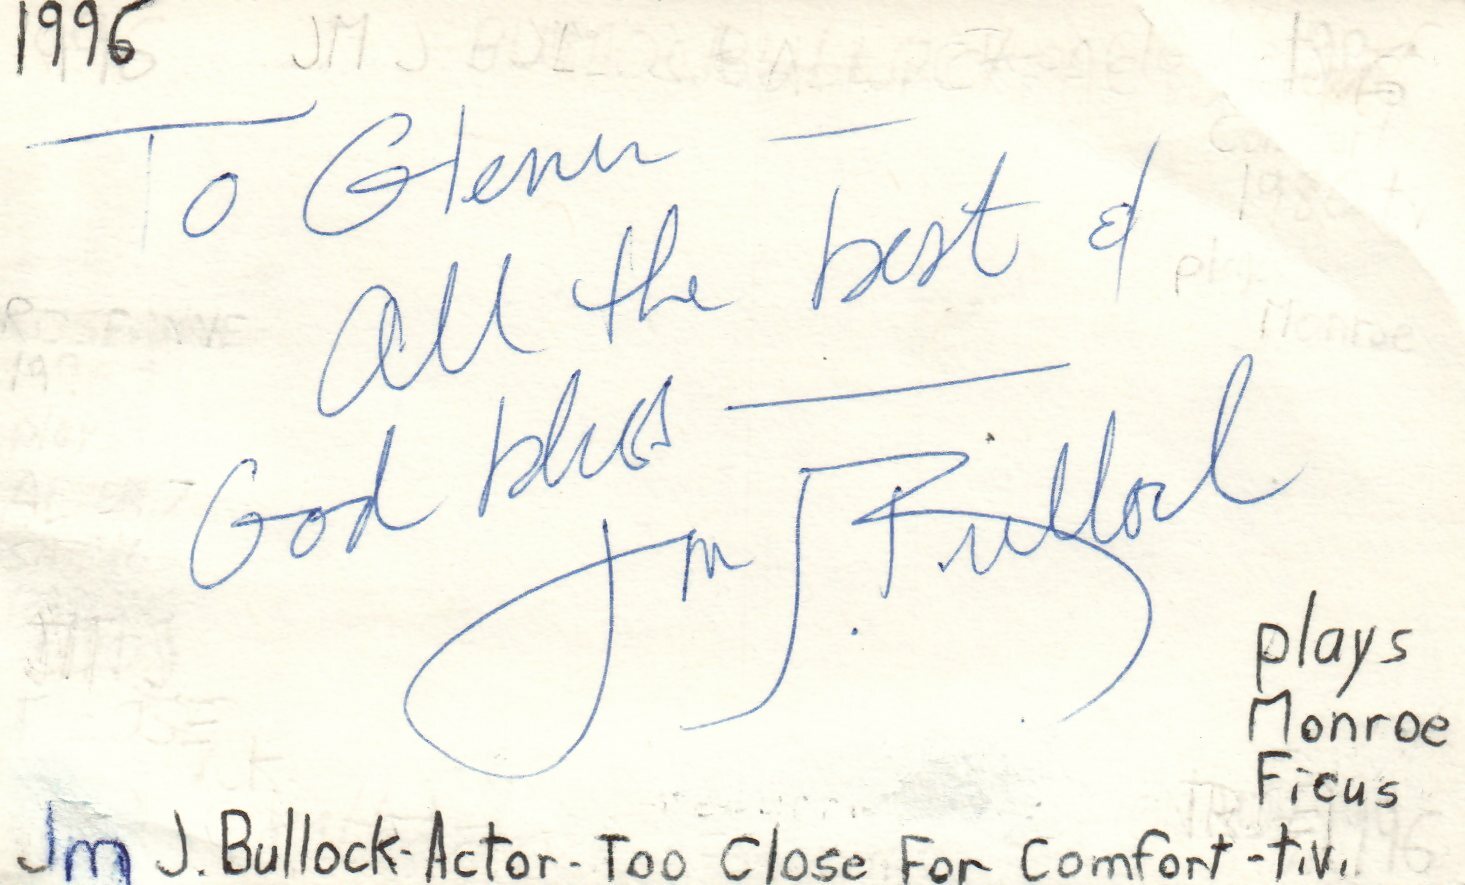 1996
To Glenn
All the best &
God bless
Jm J. Bullock
plays
Monroe
Ficus
Jm J. Bullock-Actor-Too Close For Comfort-t.v.